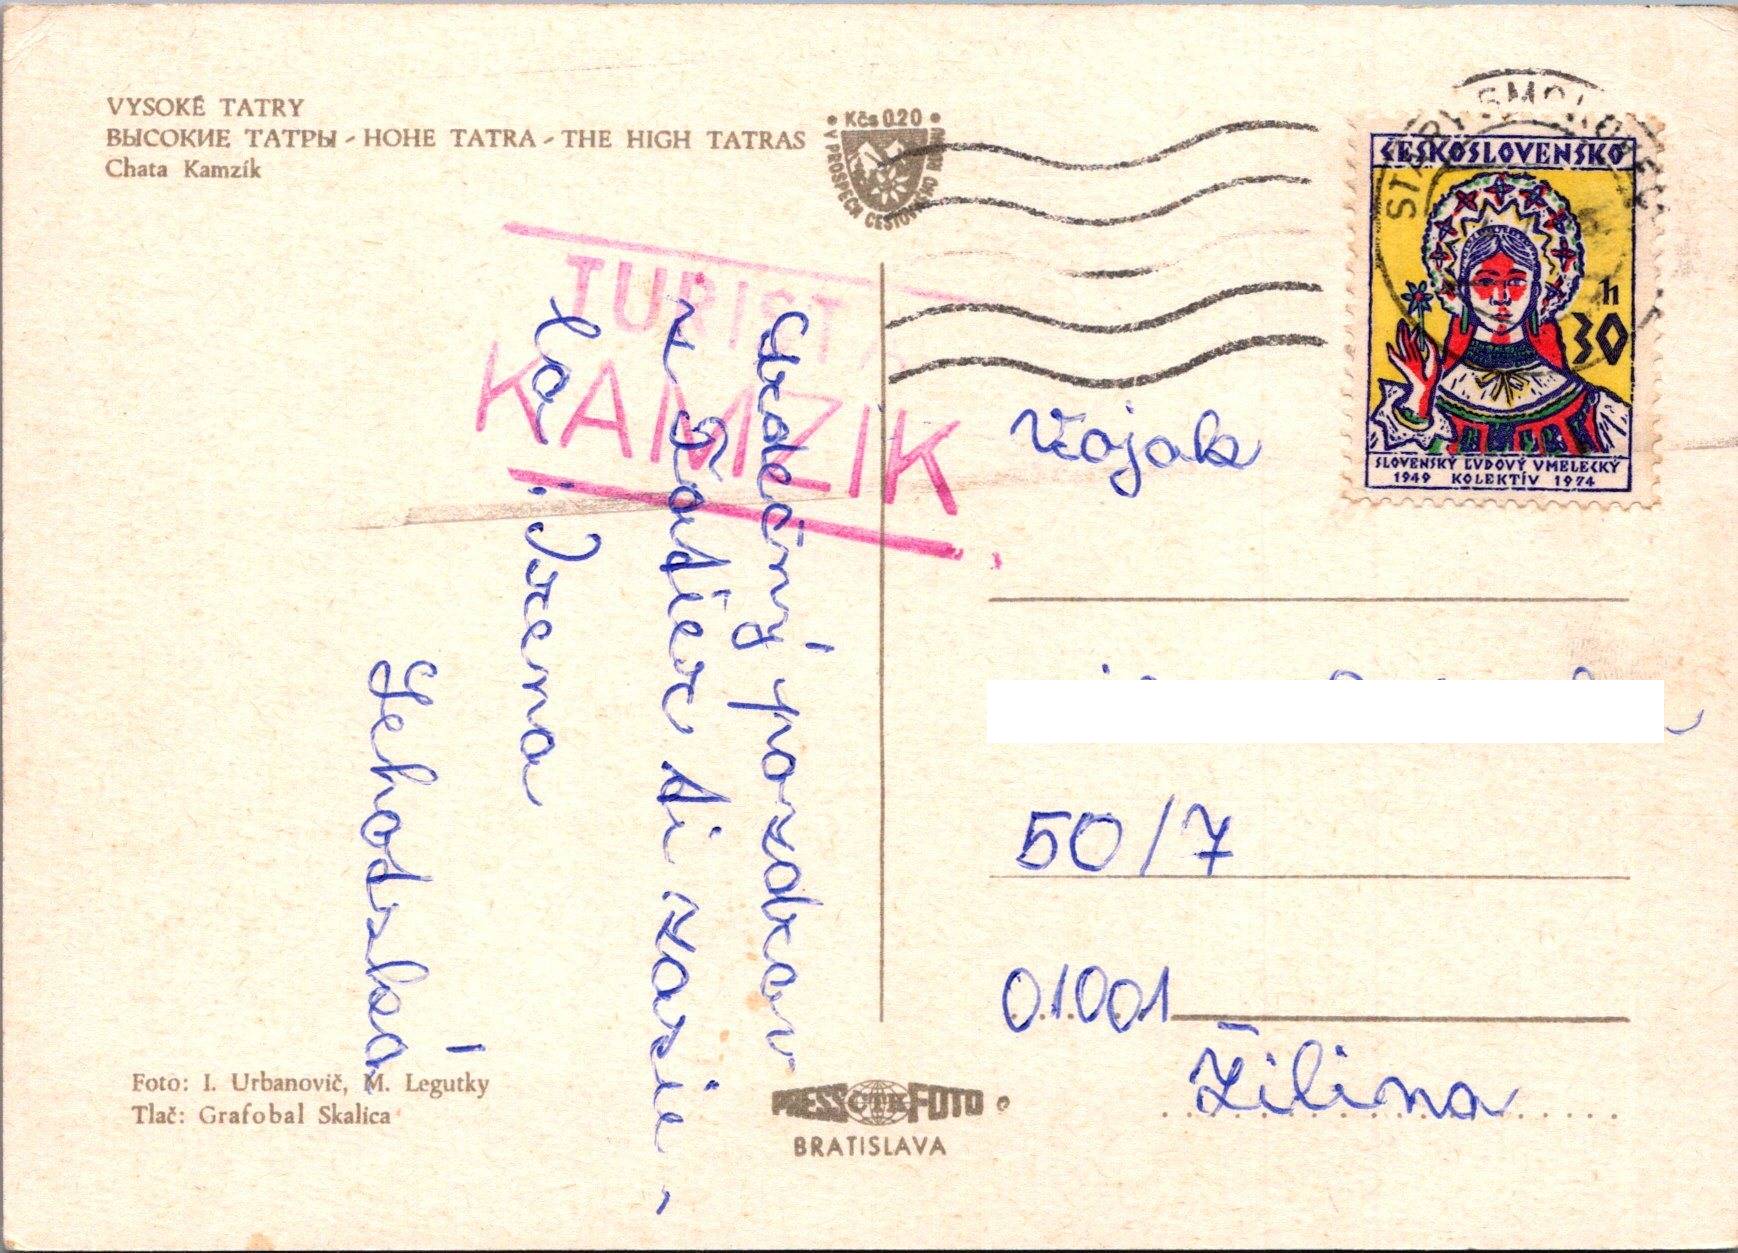 VYSOKÉ TATRY
ВЫСОКИЕ ТАТРЫ - HOHE TATRA - THE HIGH TATRAS
Chata Kamzík
Kčs 0.20
V PROSPECH CESTOVNÉHO RUCHU
STARÝ SMOKOVEC
ČESKOSLOVENSKO
h
30
SLOVENSKÝ ĽUDOVÝ UMELECKÝ
1949 KOLEKTÍV 1974
TURIST
KAMZIK
Srdečný pozdrav
z Tatier ti zasie-
la Irena
Lehotská
Vojak
50/7
01001
Žilina
Foto: I. Urbanovič, M. Legutky
Tlač: Grafobal Skalica
PRESS FOTO
BRATISLAVA